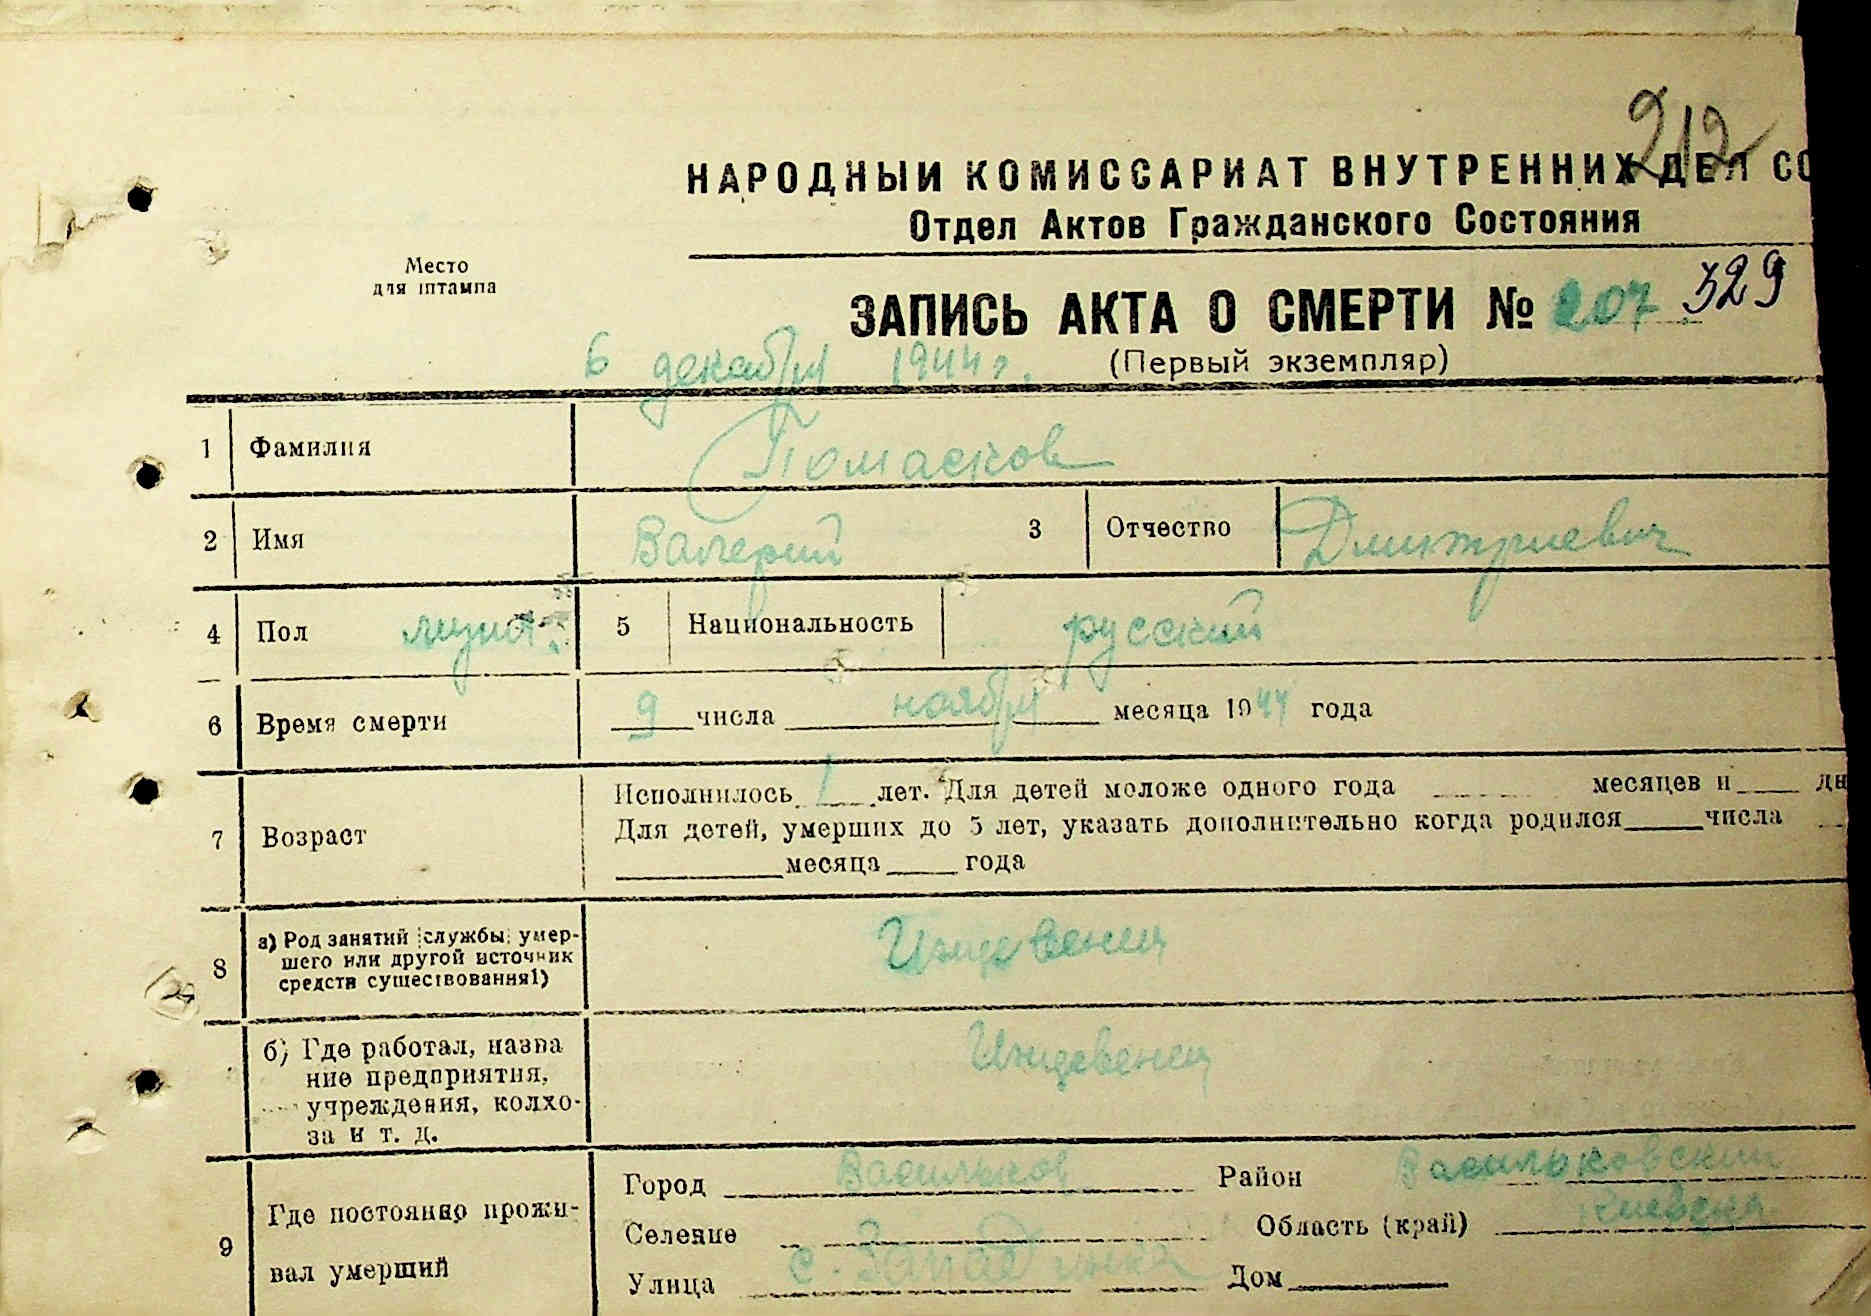 212
НАРОДНЫЙ КОМИССАРИАТ ВНУТРЕННИХ ДЕЛ СС
Отдел Актов Гражданского Состояния
Место
для штампа
ЗАПИСЬ АКТА О СМЕРТИ № 207 329
6 декабря 1944 г. (Первый экземпляр)
1 Фамилия Помасков
2 Имя Валерий 3 Отчество Дмитриевич
4 Пол муж. 5 Национальность русский
6 Время смерти 9 числа ноября месяца 1944 года
7 Возраст Исполнилось 1 лет. Для детей моложе одного года месяцев и дн
Для детей, умерших до 5 лет, указать дополнительно когда родился числа
месяца года
8 а) Род занятий (службы) умер-
шего или другой источник
средств существования1)
Иждевенец
б) Где работал, назва
ние предприятия,
учреждения, колхо-
за и т. д.
Иждевенец
9 Где постоянно прожи-
вал умерший
Город Васильков Район Васильковский
Селение Область (край) Киевская
Улица с. Западынка Дом